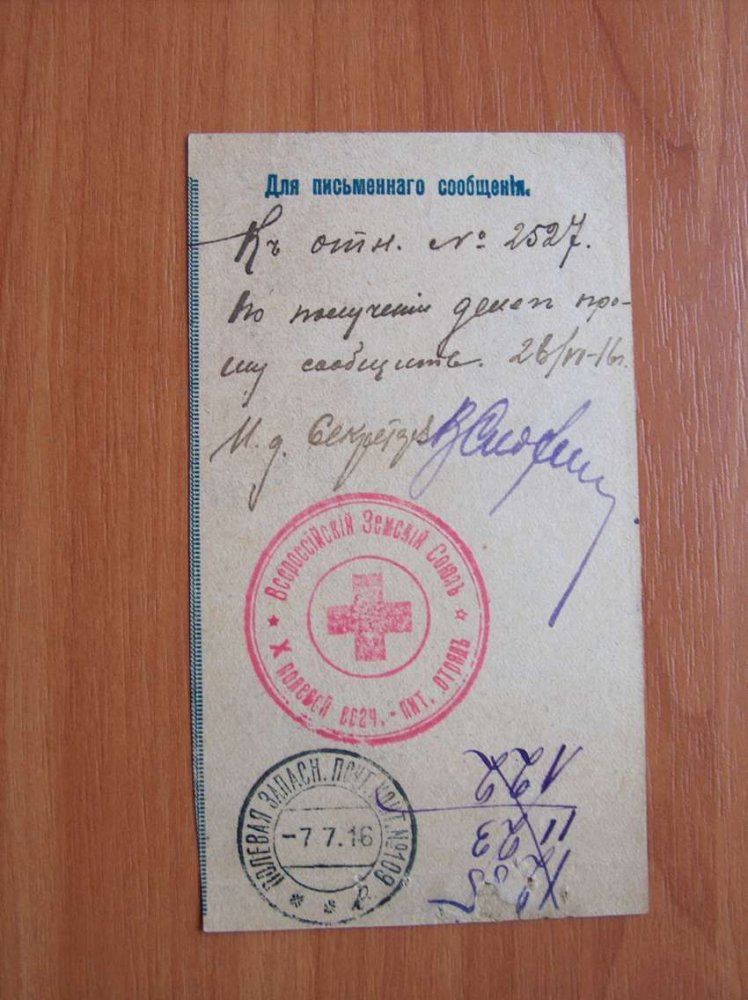 Для письменнаго сообщенія.
Къ отн. № 2527.
По получении денег про-
шу сообщить. 28/VI-16г.
И. д. Секретаря
Всероссійскій Земскій Союзъ
X полевой врач.-пит. отрядъ
ПОЛЕВАЯ ЗАПАСН. ПОЧТ. КОНТ. №109
-7 7.16
122
11 23